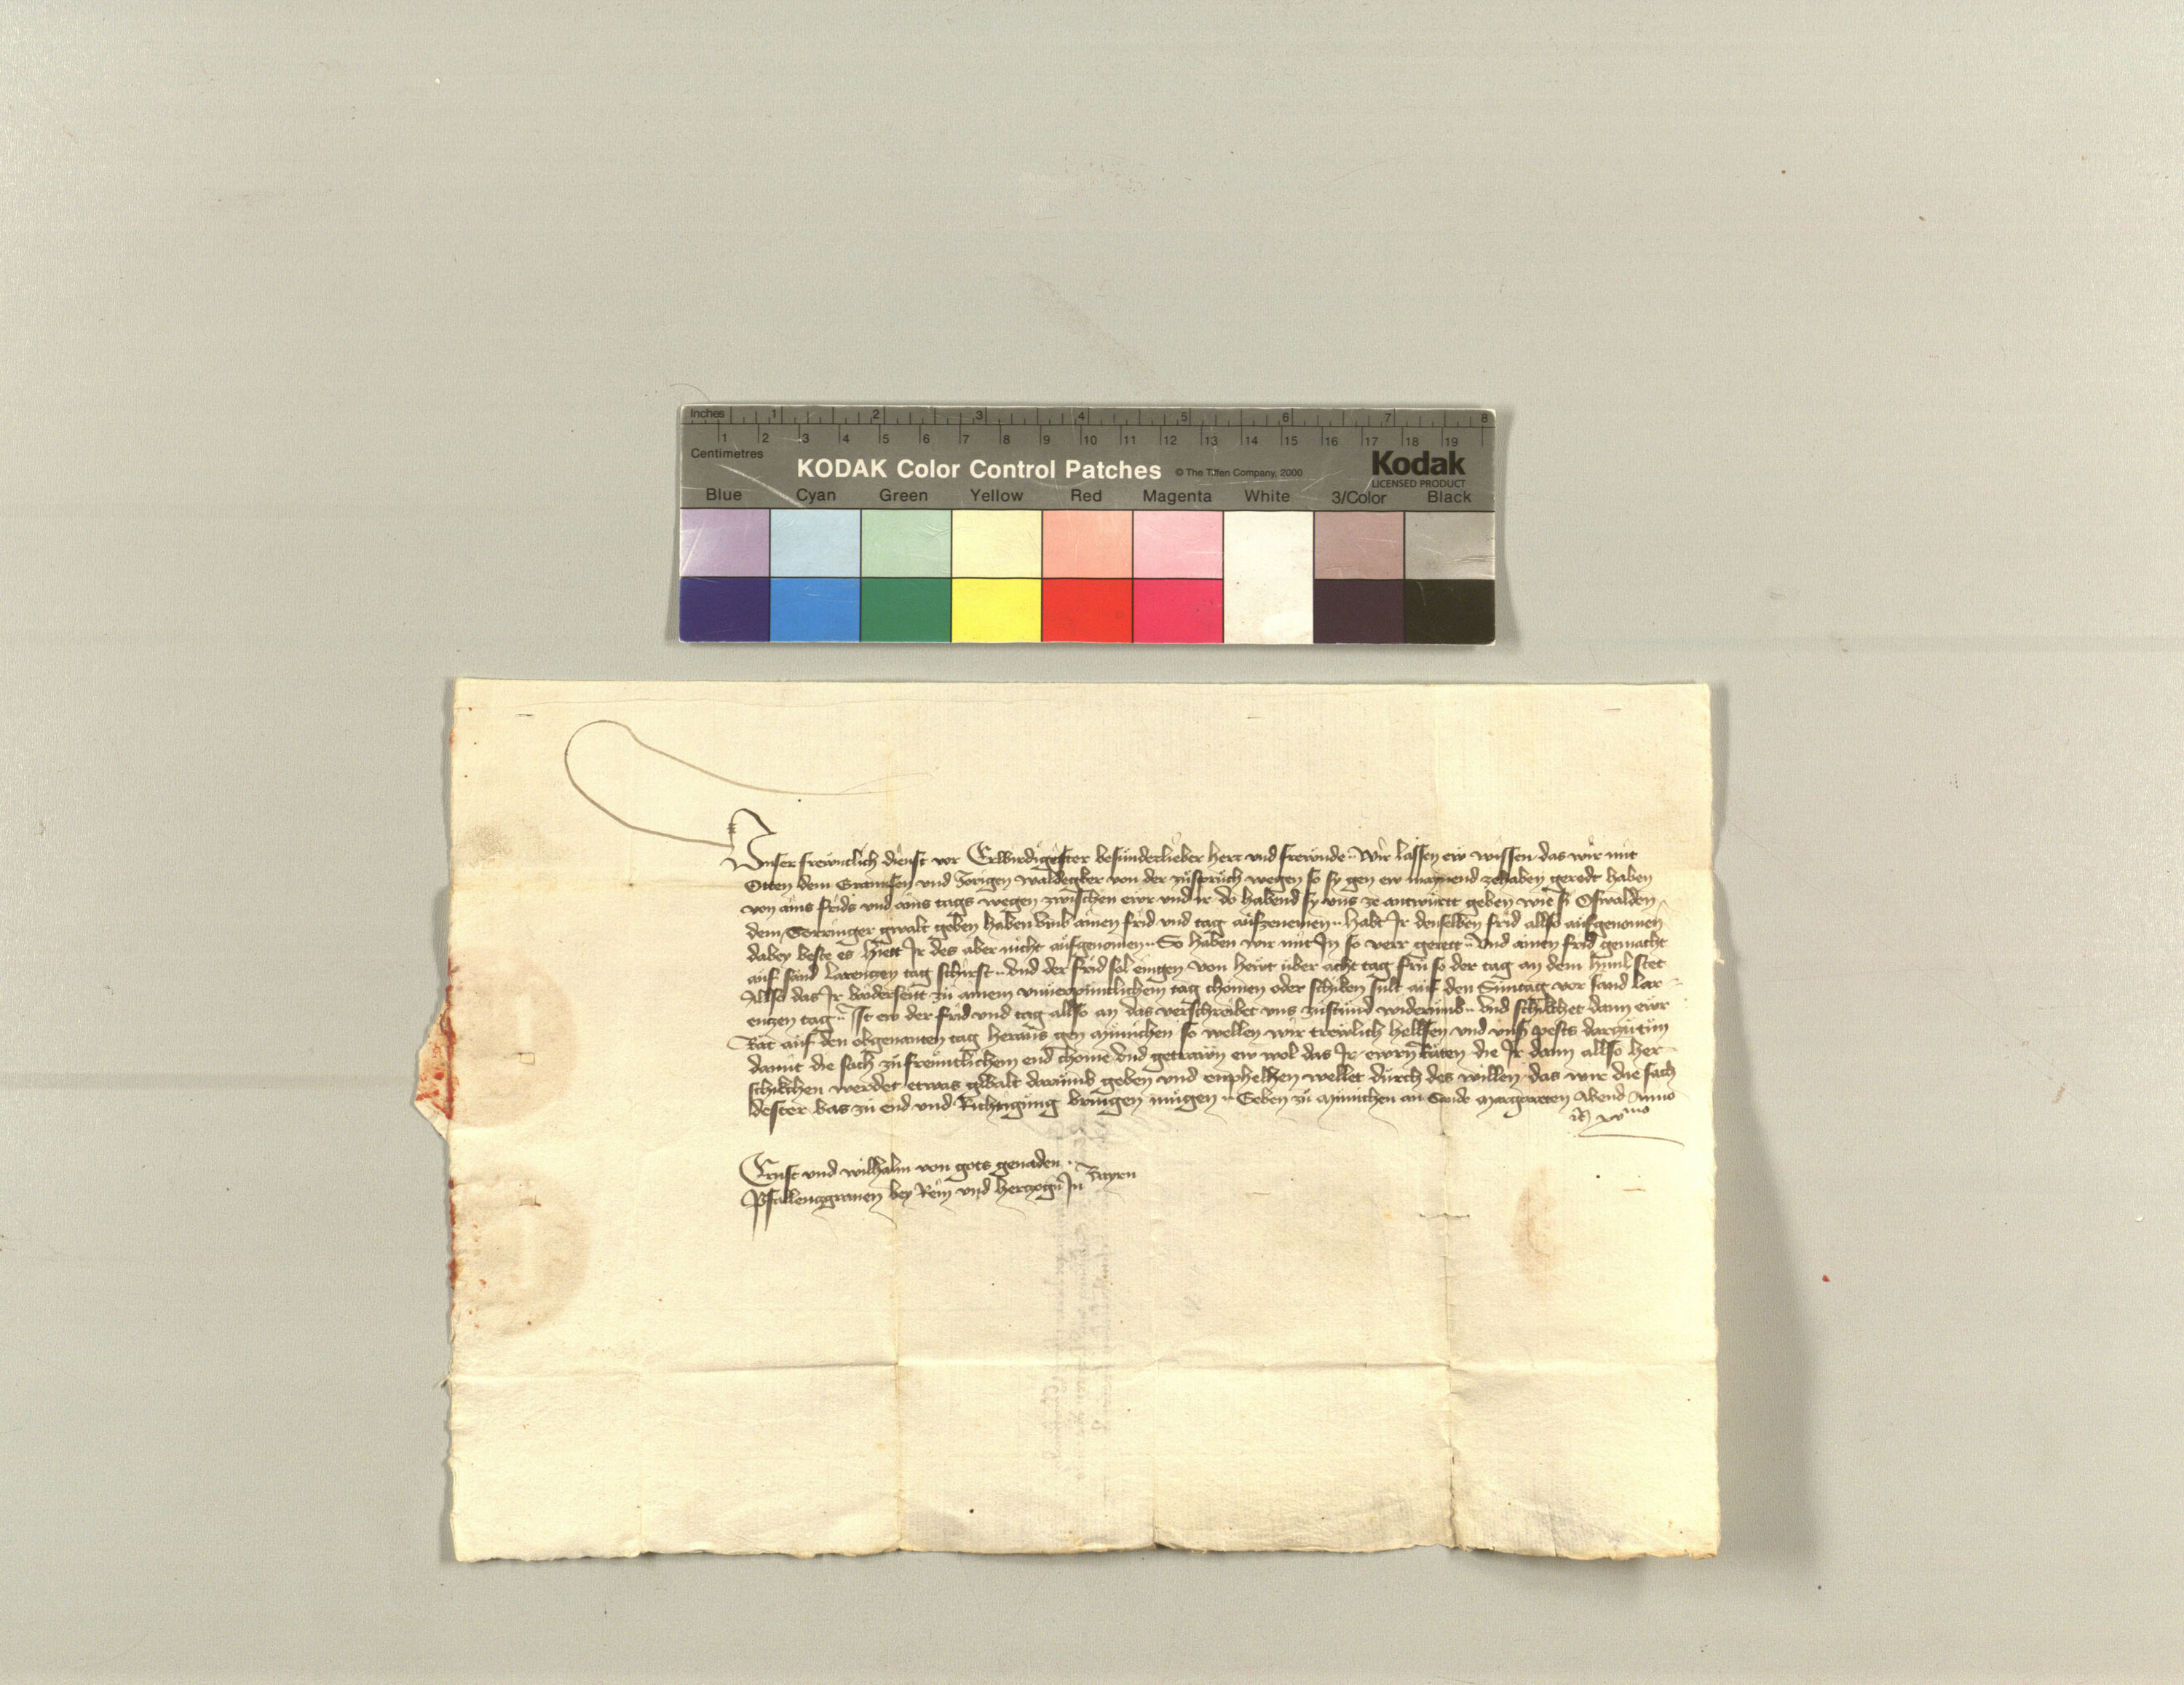 Inches 1 2 3 4 5 6 7 8
1 2 3 4 5 6 7 8 9 10 11 12 13 14 15 16 17 18 19
Centimetres
KODAK Color Control Patches © The Tiffen Company, 2000 Kodak
LICENSED PRODUCT
Blue Cyan Green Yellow Red Magenta White 3/Color Black
Unser frewntlich dienst vor Erwirdigister besunderlieber herr vnd frewnde Wir lassen ew wissen das wir mit
Otten dem Grannsen vnd Jorigen Waldegker von der zuspruch wegen so sy gen ew maynend zehaben geredt haben
von ains frids vnd ains tags wegen zwischen ewr vnd ir do habend sy vns ze antwurtt geben wie si Oswalden
dem Torringer gwalt geben haben vmb ainen frid vnd tag aufzenemen habt Ir denselben frid allso aufgenomen
dabey beste es Hiett Ir des aber nicht aufgenomen So haben wir mit In so verr gerett vnd ainen frid gemacht
auf sand Larenczen tag schirst vnd der frid sol eingen von hewt über acht tag fru so der tag an dem himl stet
Allso das Ir baidersent zu ainem tag chomen oder schiken sult auf den Suntag vor sand Lar
enczen tag Ist ew der frid vnd tag allso an das verschreibet vns zustund widerumb vnd schikchet dann ewr
Rät auf den obgenanten tag heraus gen München so wellen wir trewlich hellfen vnd vnser pests darzu tun
damit die sach zu freuntlichem end chome vnd getrawn ew wol das Ir ewrn Räten die Ir dann allso her
schikchen werdet etwas gwalt darumb geben vnd enphelhen wellet durch des willen das wir die sach
dester bas zu end vnd Richtigung bringen mügen Geben zu München an Sande Margareten Abend Anno
xvmo
Ernst vnd Wilhalm von gots genaden
Pfallenczgrauen bey Rein vnd herczogen In Bayrn